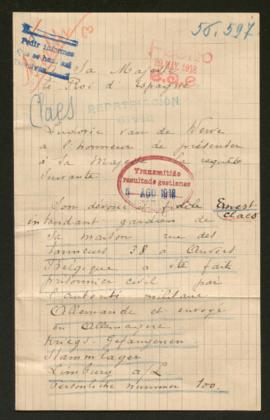 56.597
Pedir informes
29 MAY. 1918
A Sa Majesté
le Roi d'Espagne
Claes
REPATRIACION
Ludovic van de Werve
a l'honneur de présenter
à Sa Majesté la requête
suivante.
Transmitido
resultado gestiones
5 AGO 1918
Son dévoué et fidèle
Ernest Claes
intendant gardien de
sa maison rue des
Tanneurs 38 à Anvers
Belgique a été fait
prisonnier civil par
l'autorité militaire
Allemande et envoyé
en Allemagne
Kriegs-Gefangenen
Stammlager
Limburg a/L
Persönliche nummer 100.